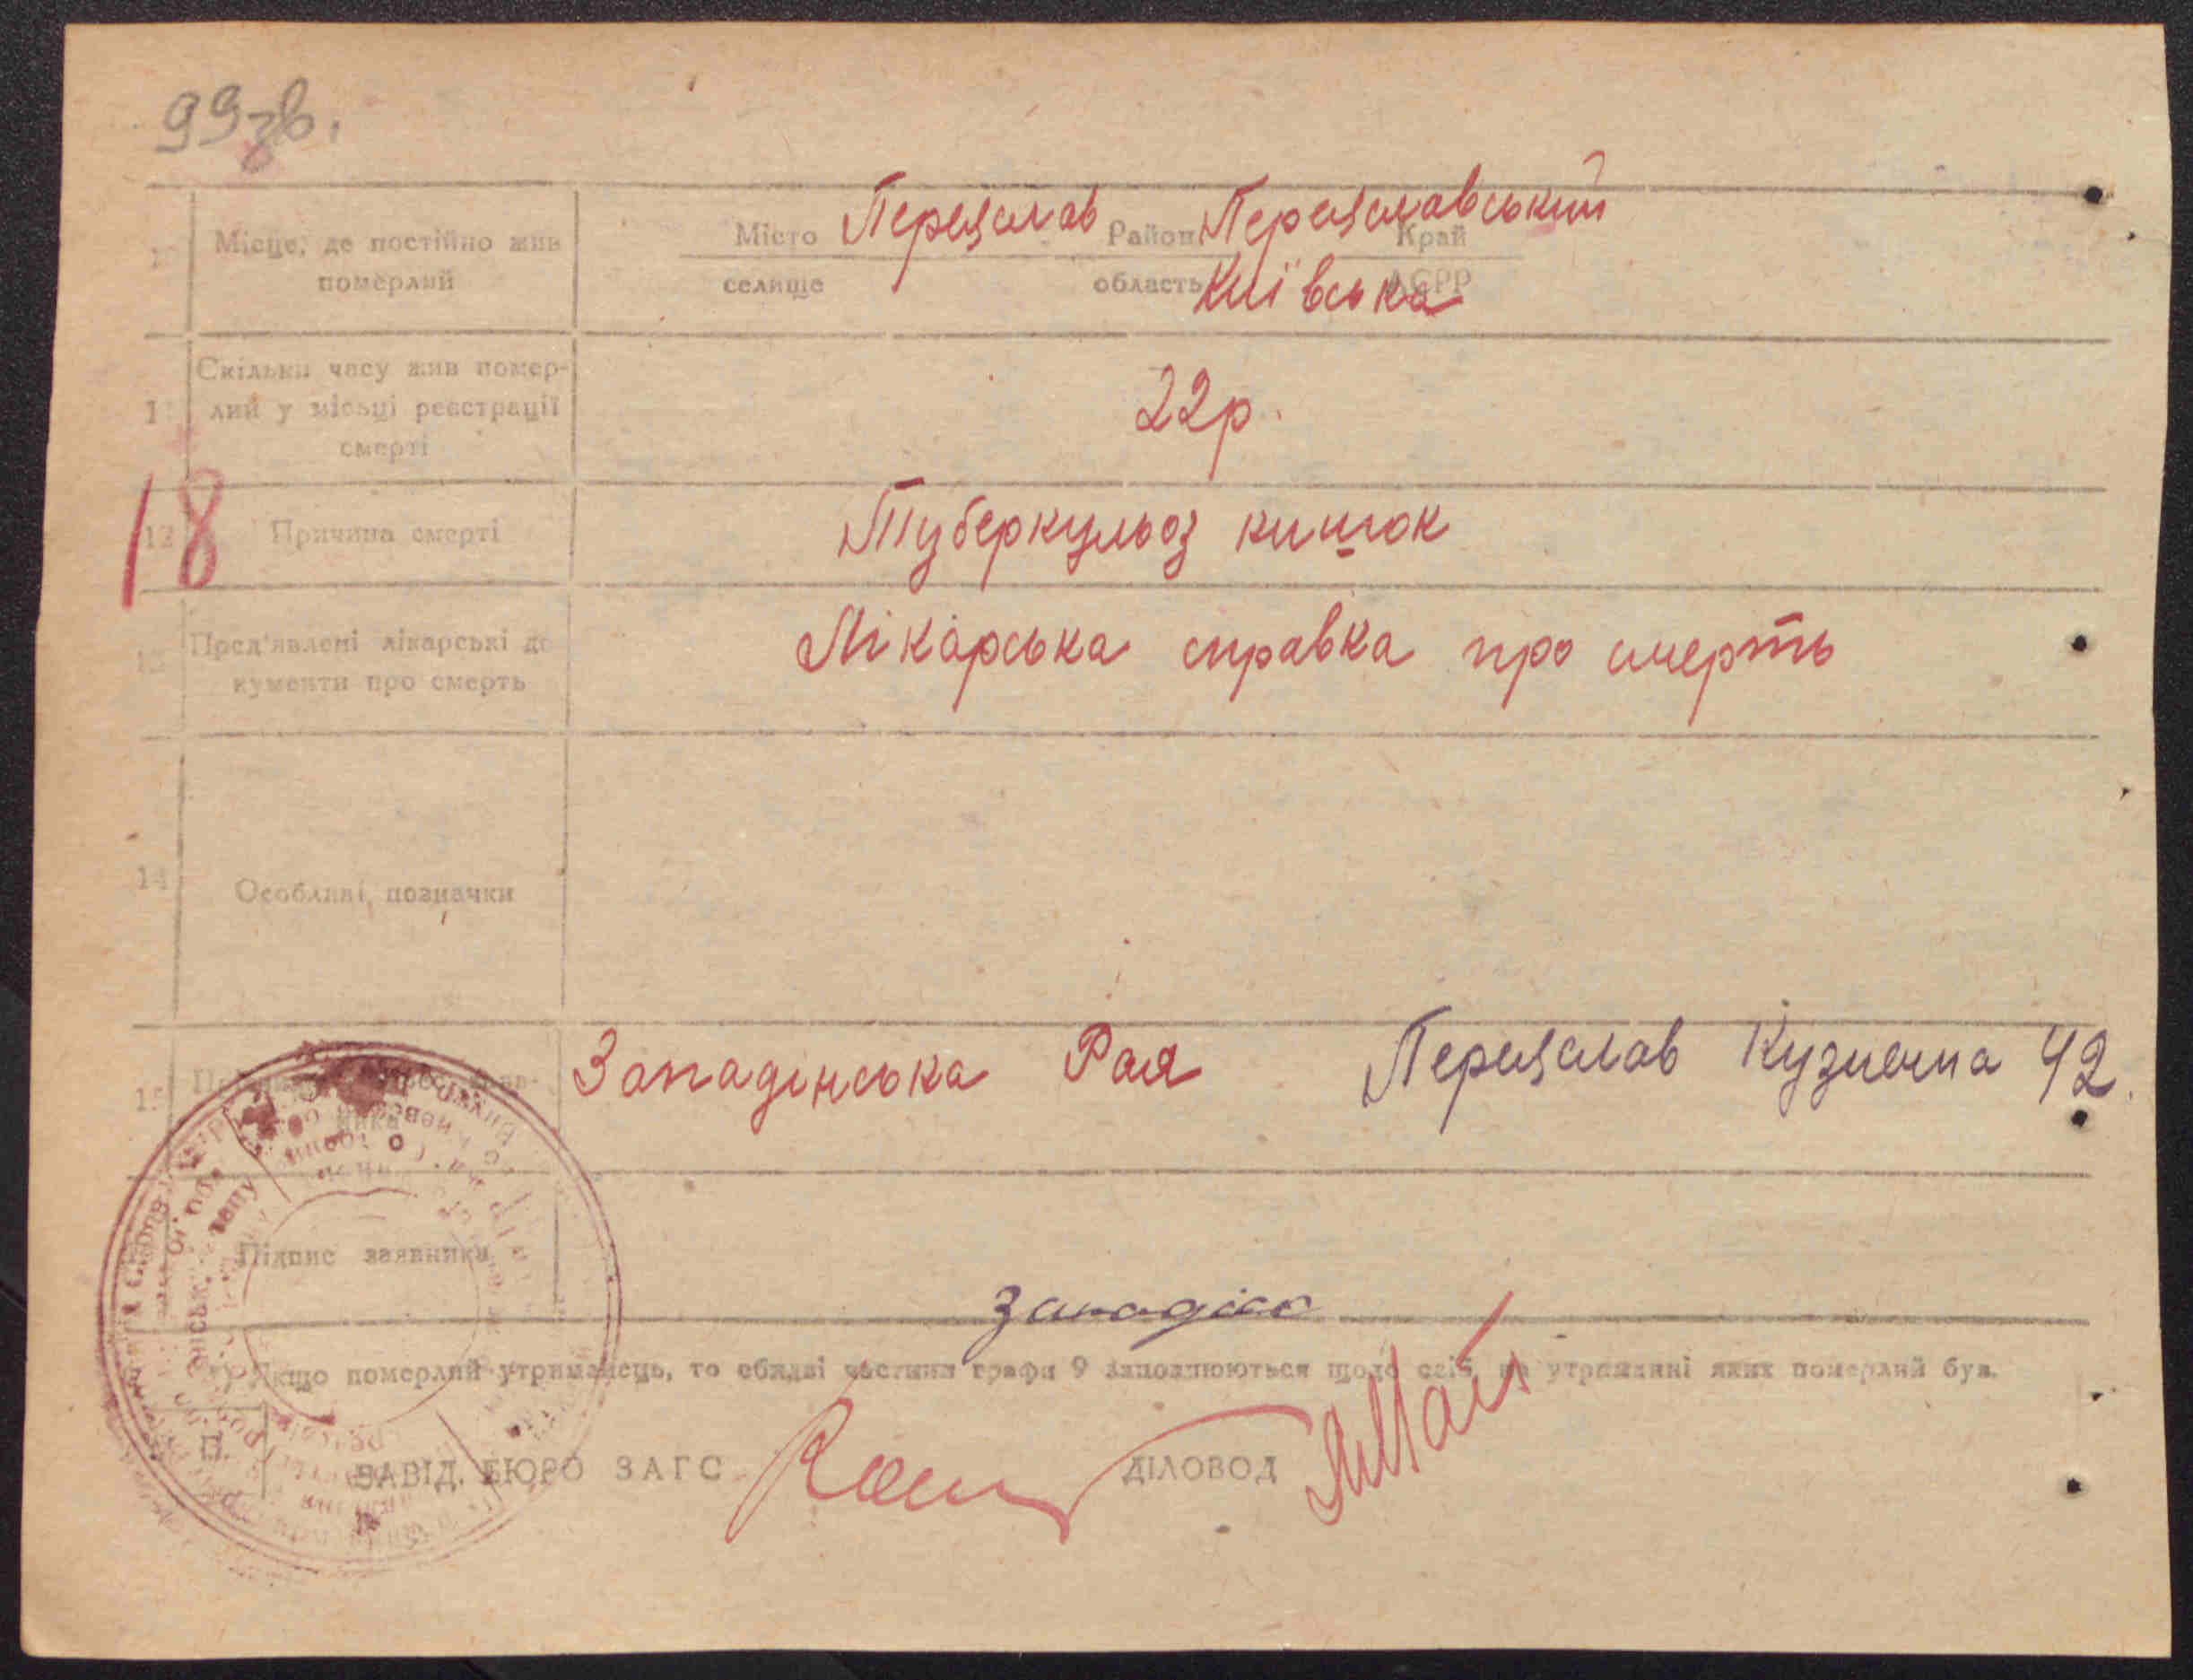 99зв.
10 Місце, де постійно жив
померлий
Місто Переяслав Район Переяславський Край
селище область Київська АСРР
11 Скільки часу жив помер-
лий у місці реєстрації
смерті
22р.
18
12 Причина смерті
Туберкульоз кишок
13 Пред'явлені лікарські до
кументи про смерть
Лікарська справка про смерть
14 Особливі позначки
15
Западінська Рая Переяслав Кузнечна 42.
Підпис заявника
Западінс
*) Якщо померлий утриманець, то обидві частини графи 9 заповнюються щодо осіб, на утриманні яких померлий був.
П.
ЗАВІД. БЮРО ЗАГС ДІЛОВОД